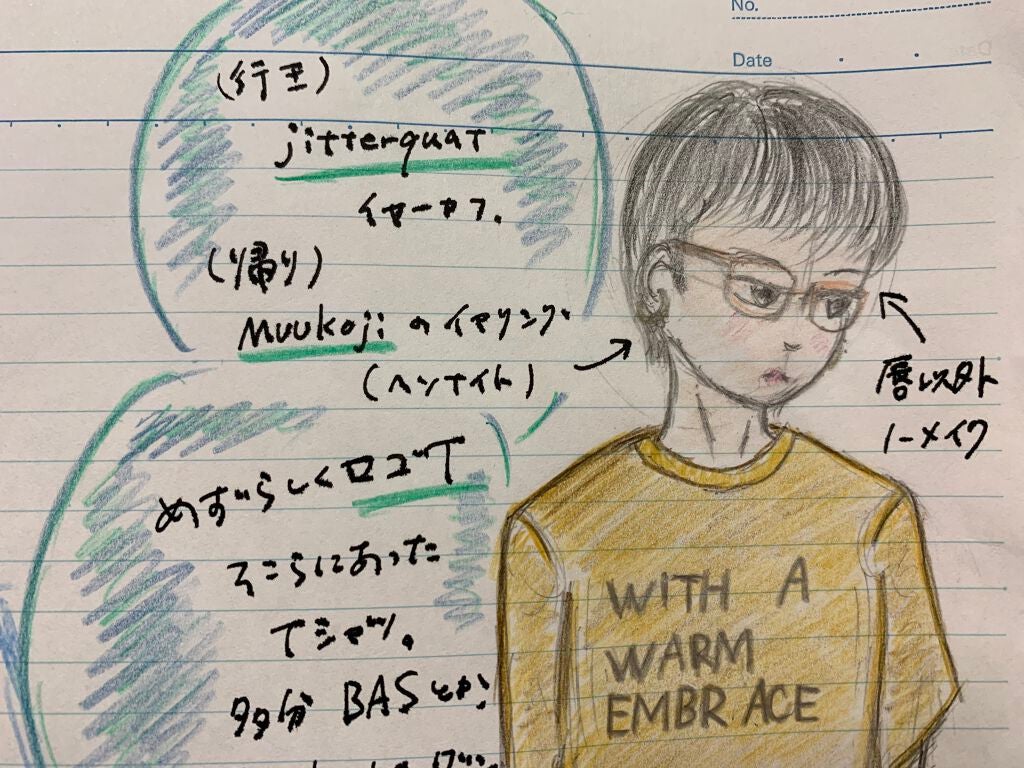 No.
Date
(行き)
jitterquat
イヤーカフ.
(帰り)
Muukojiのイヤリング
(ヘンナイト)
唇以外
ノーメイク
めずらしくロゴT
そこらにあった
Tシャツ。
多分 BASとか
WITH A
WARM
EMBRACE